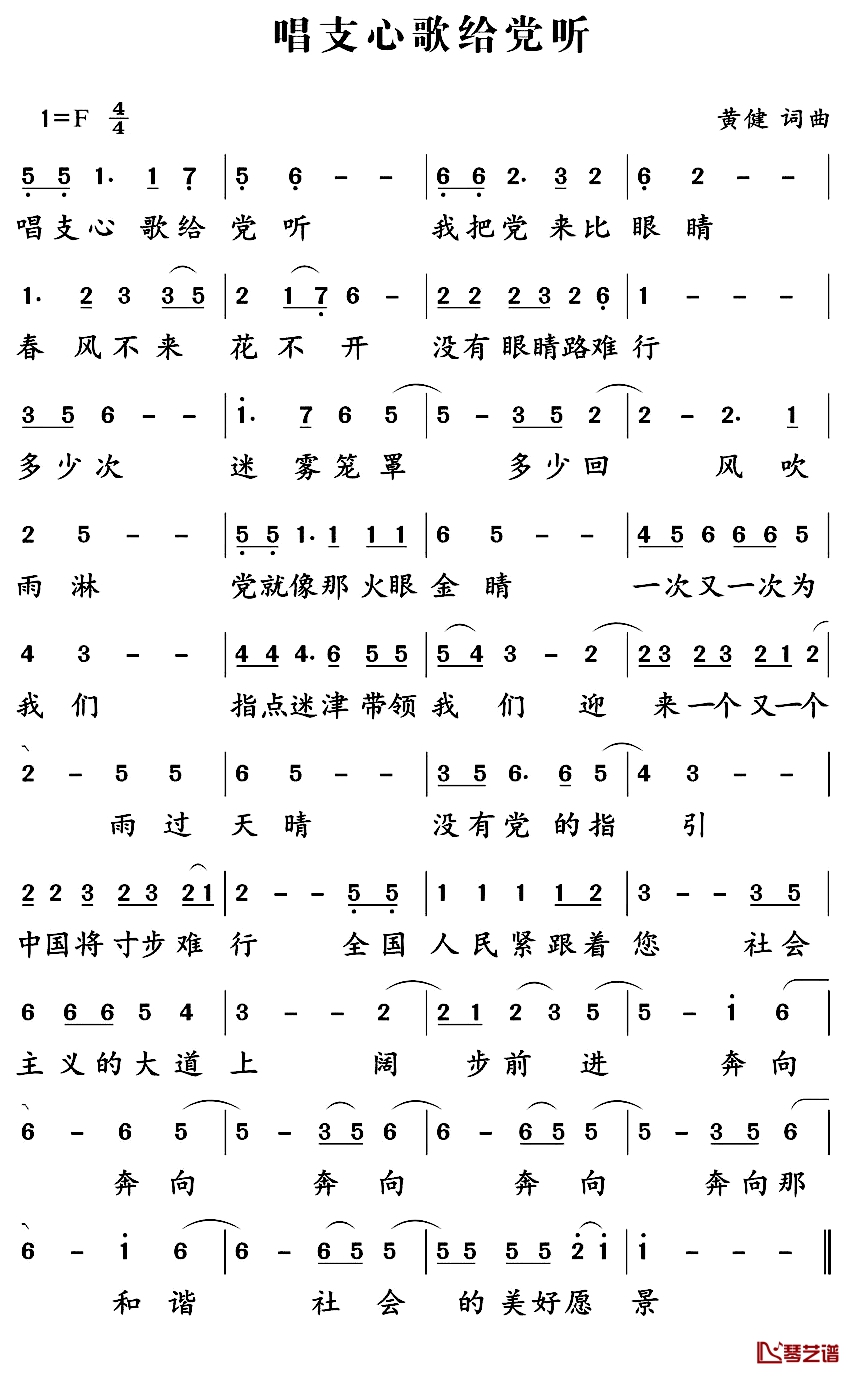 唱支心歌给党听
1=F 4/4 黄健 词曲
5 5 1. 1 7 | 5 6 - - | 6 6 2. 3 2 | 6 2 - - |
唱支心 歌给 党 听 我把党 来比 眼 睛
1. 2 3 3 5 | 2 1 7 6 - | 2 2 2 3 2 6 | 1 - - - |
春 风不 来 花 不 开 没有 眼睛路难 行
3 5 6 - - | 1. 7 6 5 | 5 - 3 5 2 | 2 - 2. 1 |
多少次 迷 雾笼 罩 多少回 风 吹
2 5 - - | 5 5 1. 1 1 1 | 6 5 - - | 4 5 6 6 6 5 |
雨 淋 党就像那 火眼 金 睛 一次又一次为
4 3 - - | 4 4 4. 6 5 5 | 5 4 3 - 2 | 2 3 2 3 2 1 2 |
我 们 指点迷津 带领 我 们 迎 来 一个 又一个
2 - 5 5 | 6 5 - - | 3 5 6. 6 5 | 4 3 - - |
雨 过 天 晴 没有党 的指 引
2 2 3 2 3 2 1 | 2 - - 5 5 | 1 1 1 1 2 | 3 - - 3 5 |
中国将 寸步 难 行 全国 人民紧 跟着 您 社会
6 6 6 5 4 | 3 - - 2 | 2 1 2 3 5 | 5 - 1 6 |
主义的大道 上 阔 步前 进 奔 向
6 - 6 5 | 5 - 3 5 6 | 6 - 6 5 5 | 5 - 3 5 6 |
奔 向 奔 向 奔 向 奔向那
6 - 1 6 | 6 - 6 5 5 | 5 5 5 5 2 1 | 1 - - - ‖
和 谐 社 会 的 美好愿 景
琴艺谱